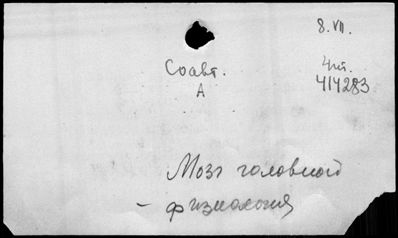 8.VII.
Соавт.
А
4пт.
414283
Мозг головной
- физиология